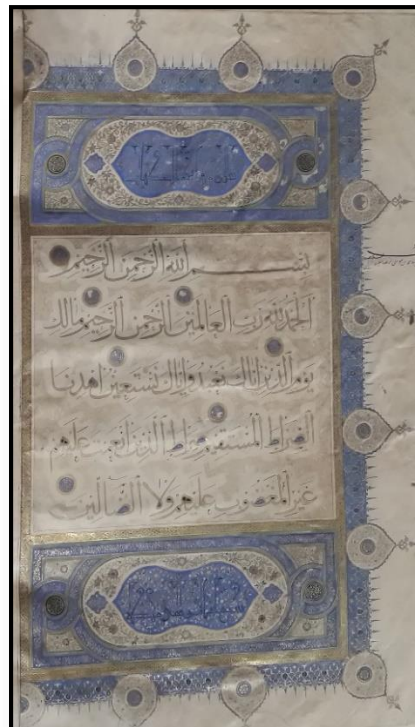 بسم الله الرحمن الرحيم
الحمد لله رب العالمين الرحمن الرحيم مالك
يوم الدين إياك نعبد وإياك نستعين اهدنا
الصراط المستقيم صراط الذين أنعمت عليهم
غير المغضوب عليهم ولا الضالين